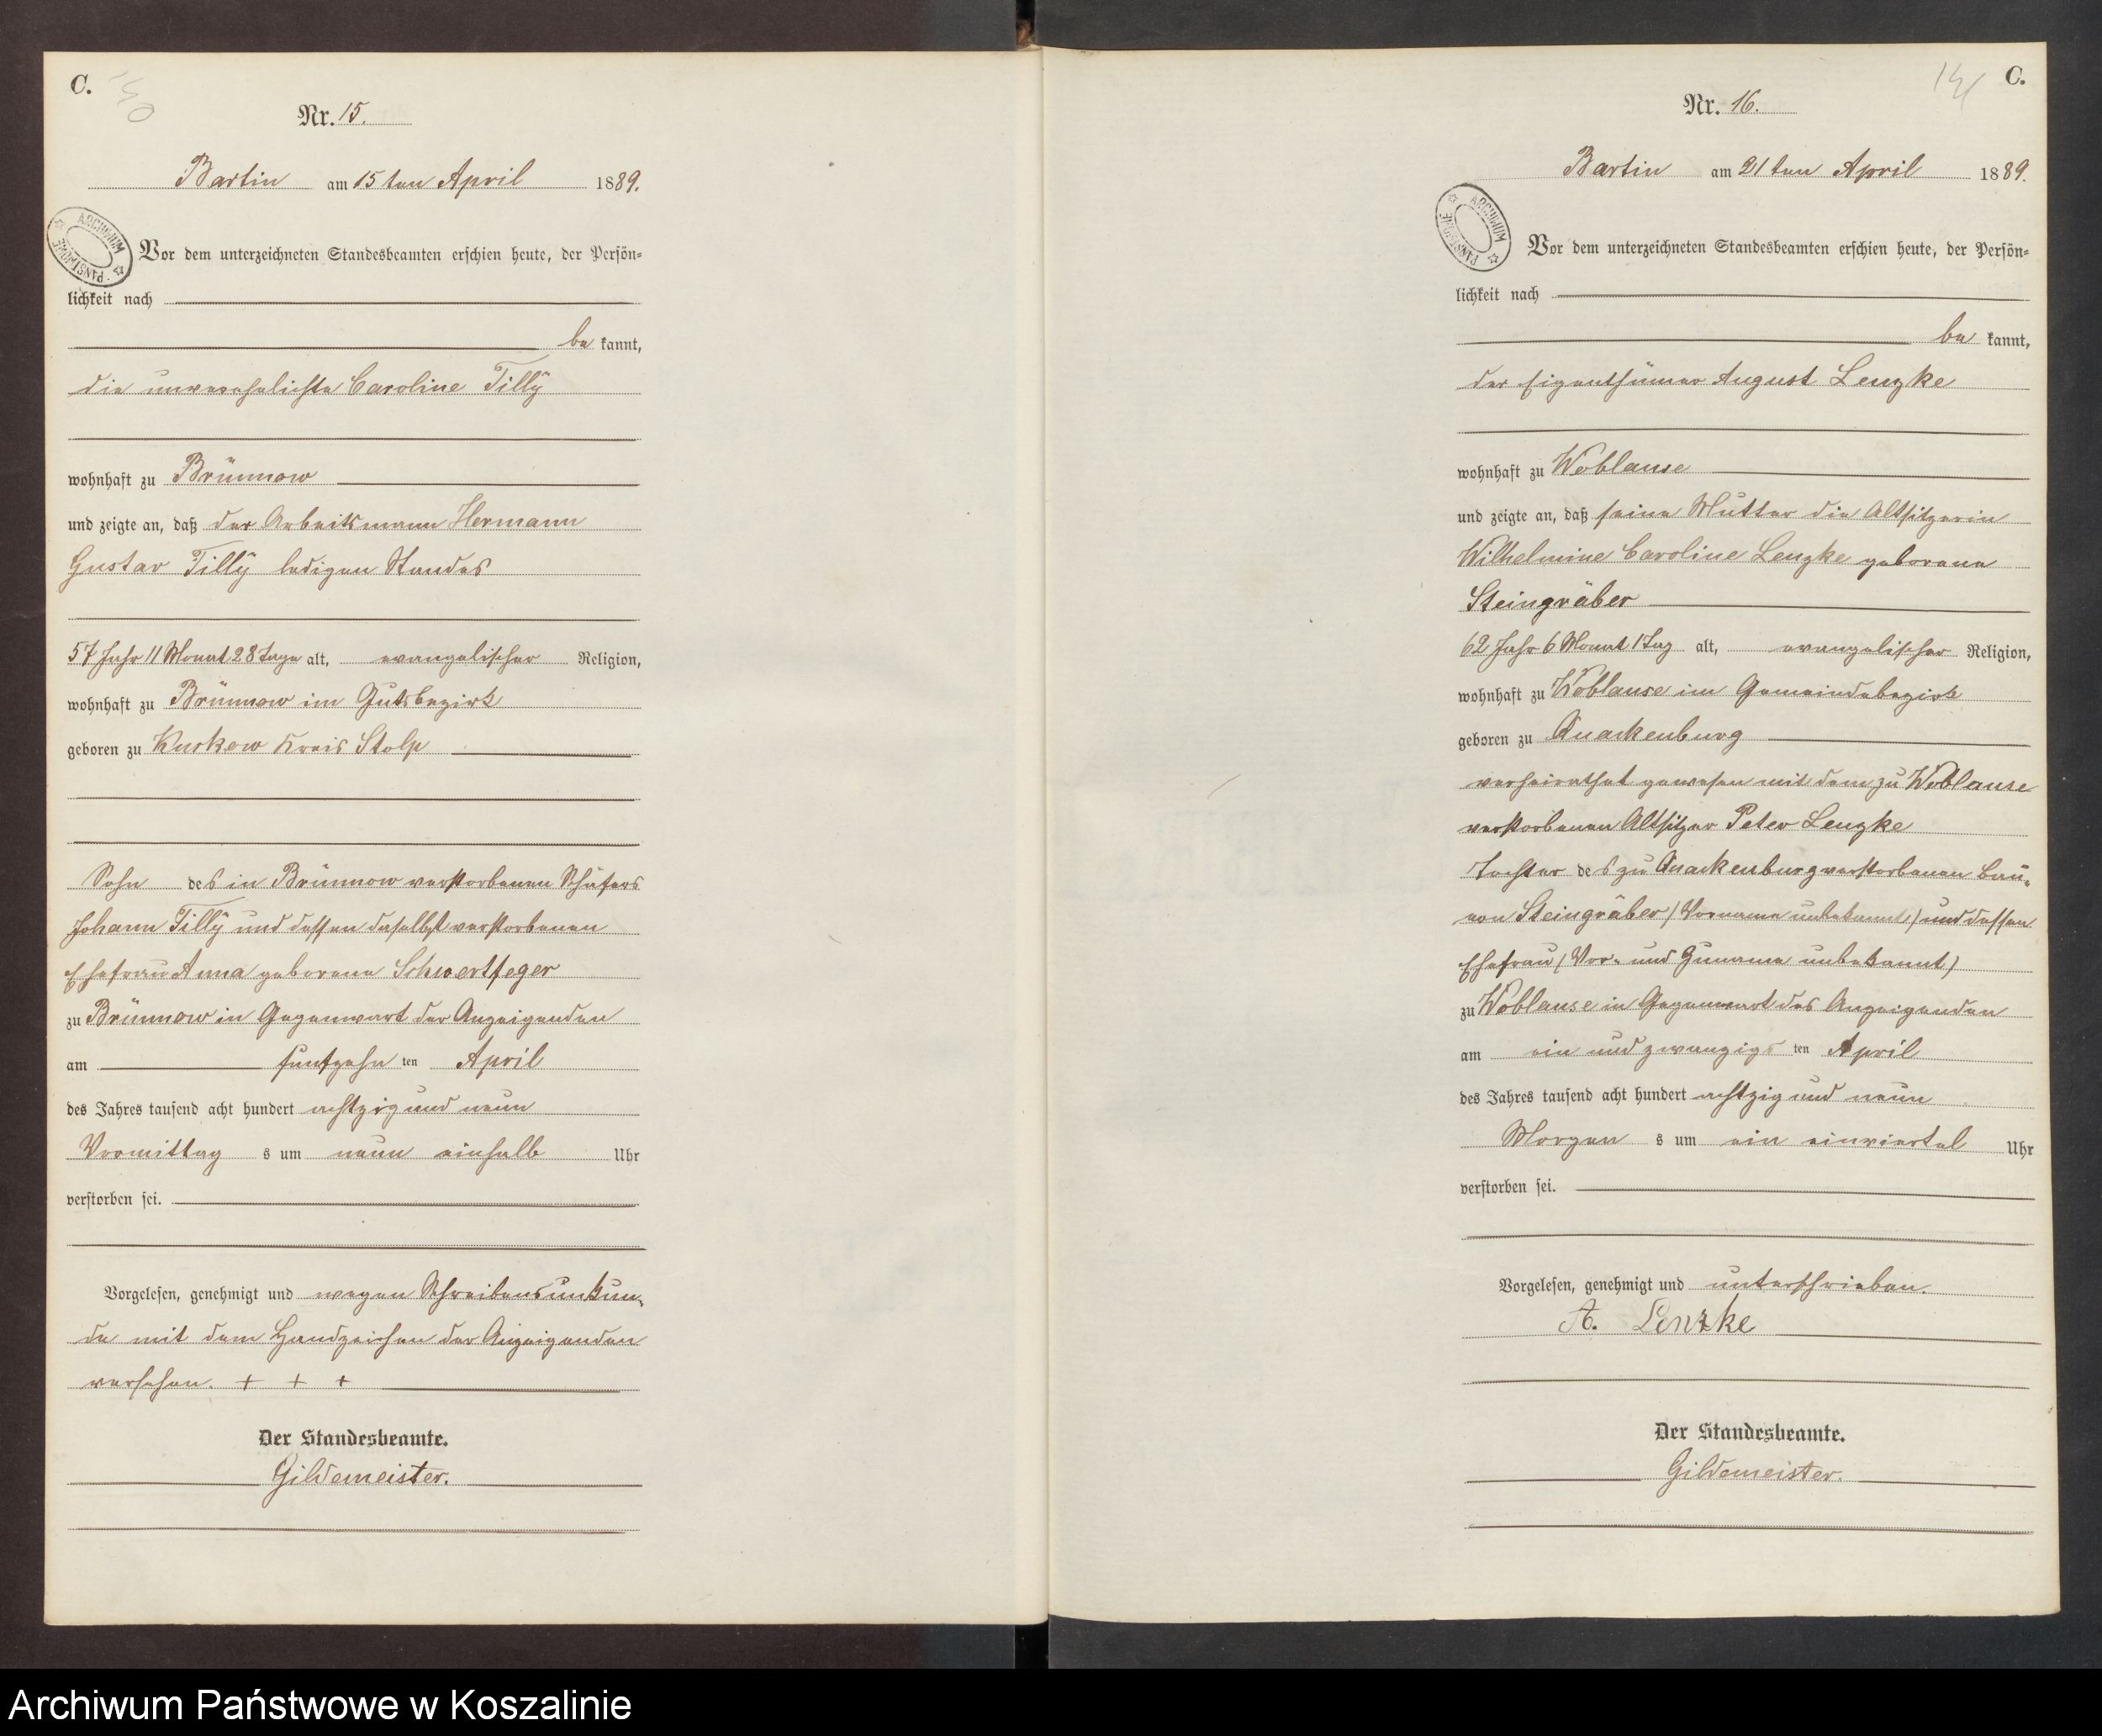 C.
Nr. 15.
Bartin am 15ten April 1889.
ARCHIWUM PAŃSTWOWE
Vor dem unterzeichneten Standesbeamten erschien heute, der Persön-
lichkeit nach
be kannt,
die unverehelichte Caroline Tilly
wohnhaft zu Brünnow
und zeigte an, daß der Arbeitsmann Hermann
Gustav Tilly ledigen Standes
57 Jahr 11 Monat 28 Tage alt, evangelischer Religion,
wohnhaft zu Brünnow im Gutsbezirk
geboren zu Kuskow Kreis Stolp
Sohn des in Brünnow verstorbenen Schäfers
Johann Tilly und dessen daselbst verstorbenen
Ehefrau Anna geborene Schwertfeger
zu Brünnow in Gegenwart der Anzeigenden
am funfzehn ten April
des Jahres tausend acht hundert achtzig und neun
Vormittag s um neun einhalb Uhr
verstorben sei.
Vorgelesen, genehmigt und wegen Schreibensunkun-
de mit dem Handzeichen der Anzeigenden
versehen. + + +
Der Standesbeamte.
Gildemeister.
141 C.
Nr. 16.
Bartin am 21ten April 1889.
ARCHIWUM PAŃSTWOWE
Vor dem unterzeichneten Standesbeamten erschien heute, der Persön-
lichkeit nach
be kannt,
der Eigenthümer August Lenzke
wohnhaft zu Woblanse
und zeigte an, daß seine Mutter die Altsitzerin
Wilhelmine Caroline Lenzke geborene
Steingräber
62 Jahr 6 Monat 1 Tag alt, evangelischer Religion,
wohnhaft zu Woblanse im Gemeindebezirk
geboren zu Quackenburg
verheirathet gewesen mit dem zu Woblanse
verstorbenen Altsitzer Peter Lenzke
Tochter des zu Quackenburg verstorbenen Bau-
ern Steingräber (Vorname unbekannt) und dessen
Ehefrau (Vor- und Zuname unbekannt)
zu Woblanse in Gegenwart des Anzeigenden
am ein und zwanzigs ten April
des Jahres tausend acht hundert achtzig und neun
Morgen s um ein einviertel Uhr
verstorben sei.
Vorgelesen, genehmigt und unterschrieben.
A. Lenzke
Der Standesbeamte.
Gildemeister.
Archiwum Państwowe w Koszalinie